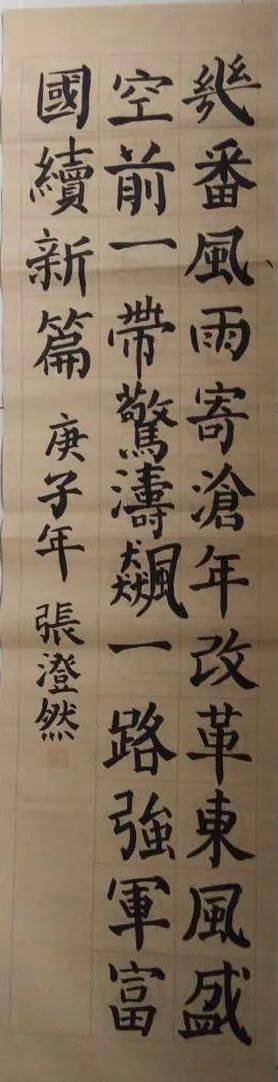 幾番風雨寄滄年改革東風盛
空前一帶驚濤飆一路強軍富
國續新篇 庚子年 張澄然